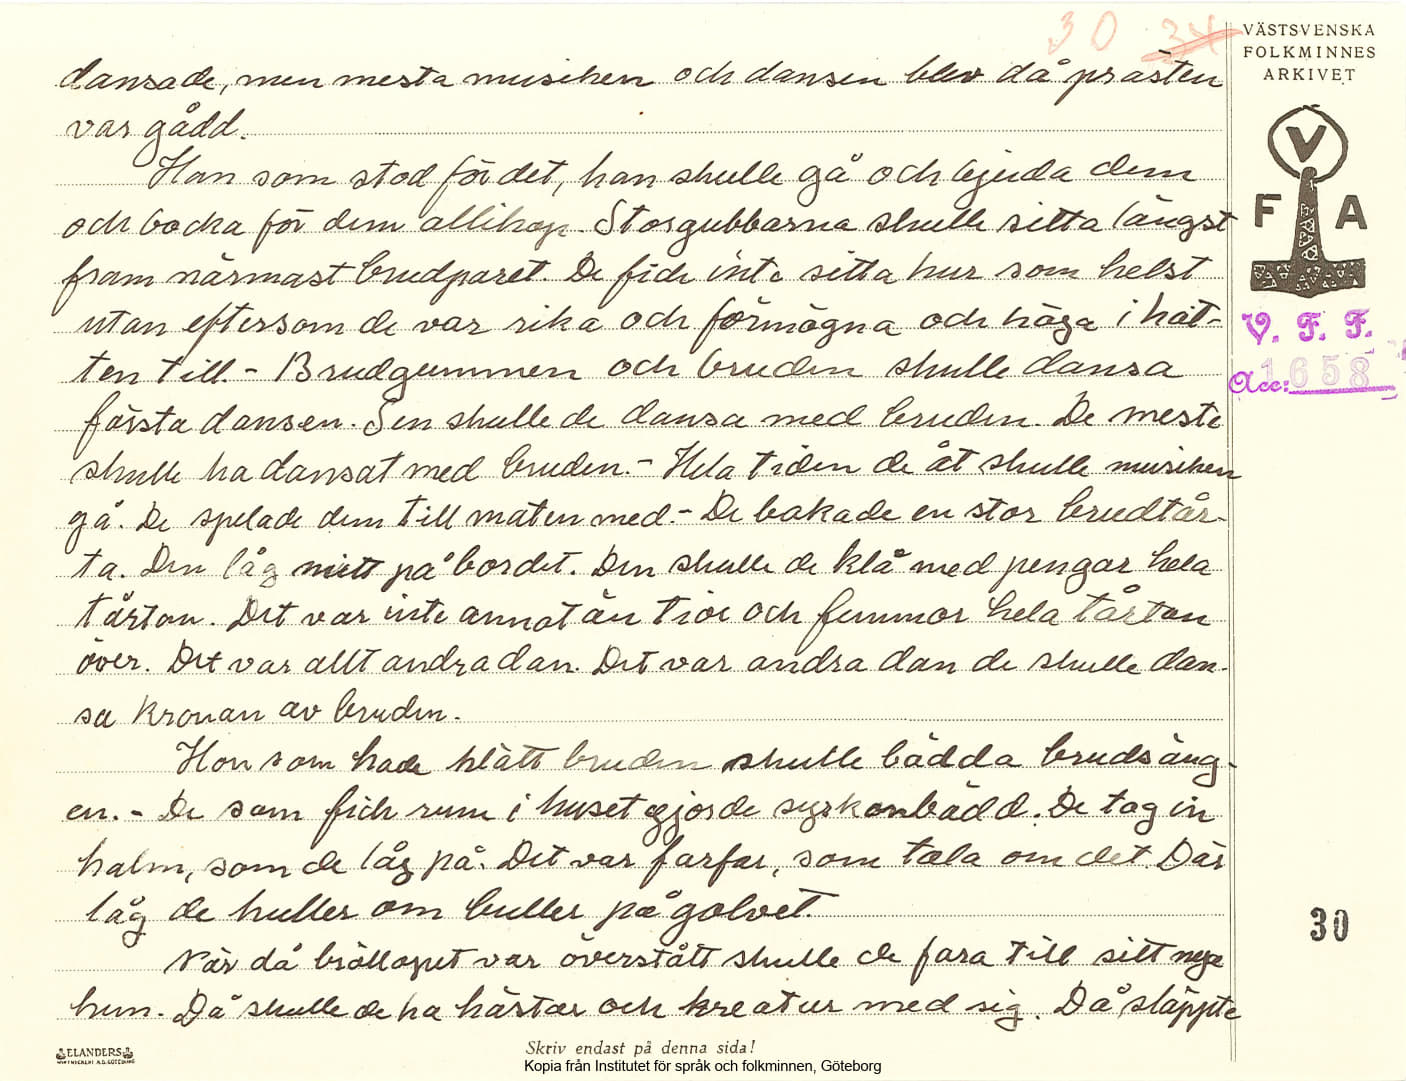 30 34
VÄSTSVENSKA
FOLKMINNES
ARKIVET
V
F A
V. F. F.
Acc: 1658
dansade, men mesta musiken och dansen blev då prästen
var gådd.
Han som stod för det, han skulle gå och bjuda dem
och bocka för dem allihop. Storgubbarna skulle sitta längst
fram närmast brudparet. De fick inte sitta hur som helst
utan eftersom de var rika och förmögna och höga i hat-
ten till. - Brudgummen och bruden skulle dansa
första dansen. Sen skulle de dansa med bruden. De meste
skulle ha dansat med bruden. - Hela tiden de åt skulle musiken
gå. De spelade dem till maten med. - De bakade en stor brudtår-
ta. Den låg mitt på bordet. Den skulle de klå med pengar hela
tårtan. Det var inte annat än tior och femmor hela tårtan
över. Det var allt andra dan. Det var andra dan de skulle dan-
sa kronan av bruden.
Hon som hade klätt bruden skulle bädda brudsäng-
en. - De som fick rum i huset gjorde syskonbädd. De tog in
halm, som de låg på. Det var farfar, som tala om det. Där
låg de huller om buller på golvet.
När då bröllopet var överstått skulle de fara till sitt nya
hem. Då skulle de ha hästar och kreatur med sig. Då släppte
30
ELANDERS
Skriv endast på denna sida!
Kopia från Institutet för språk och folkminnen, Göteborg